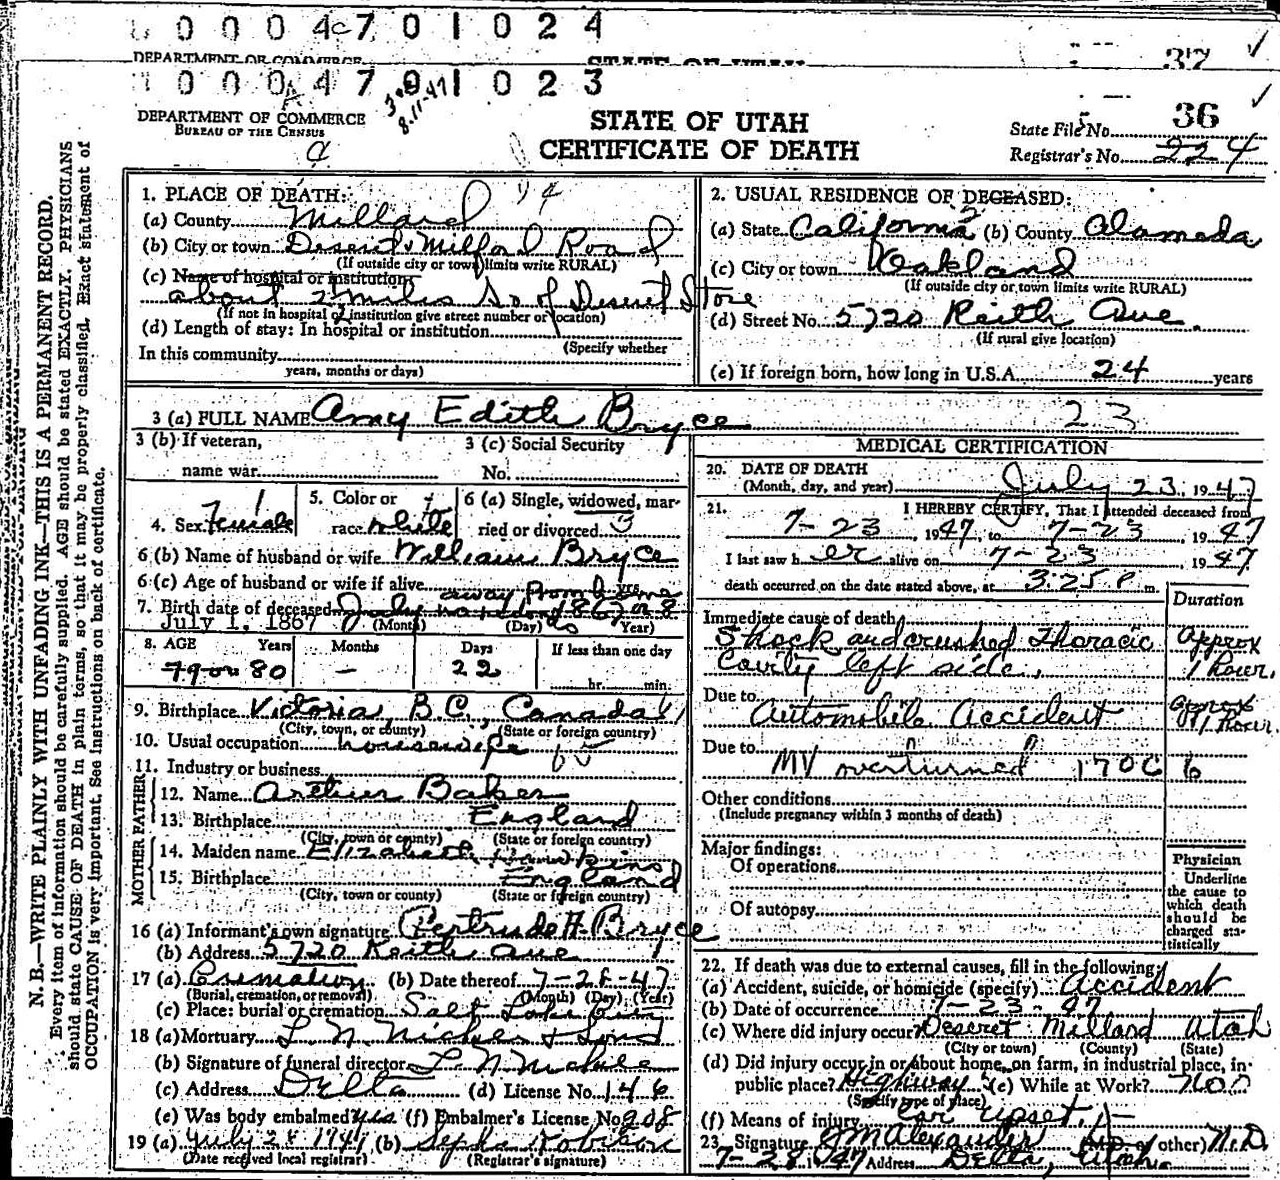 0 0 0 4 7 0 1 0 2 4
DEPARTMENT OF COMMERCE STATE OF UTAH 37
0 0 0 4 7 0 1 0 2 3
8-11-47
DEPARTMENT OF COMMERCE
BUREAU OF THE CENSUS
STATE OF UTAH
CERTIFICATE OF DEATH
State File No. 36
Registrar's No. 224
N. B.—WRITE PLAINLY WITH UNFADING INK—THIS IS A PERMANENT RECORD.
Every item of information should be carefully supplied. AGE should be stated EXACTLY. PHYSICIANS
should state CAUSE OF DEATH in plain terms, so that it may be properly classified. Exact statement of
OCCUPATION is very important. See instructions on back of certificate.
1. PLACE OF DEATH:
(a) County Millard
(b) City or town Deseret & Milford Road
(If outside city or town limits write RURAL)
(c) Name of hospital or institution
about 2 miles So of Deseret Store
(If not in hospital or institution give street number or location)
(d) Length of stay: In hospital or institution
(Specify whether
In this community
years, months or days)
2. USUAL RESIDENCE OF DECEASED:
(a) State California (b) County Alameda
(c) City or town Oakland
(If outside city or town limits write RURAL)
(d) Street No. 5720 Keith Ave.
(If rural give location)
(e) If foreign born, how long in U.S.A. 24 years
3 (a) FULL NAME Amy Edith Bryce 23
3 (b) If veteran,
name war
3 (c) Social Security
No.
4. Sex female
5. Color or
race white
6 (a) Single, widowed, mar-
ried or divorced 3
6 (b) Name of husband or wife William Bryce
6 (c) Age of husband or wife if alive years
7. Birth date of deceased July 1867 or 8
July 1, 1867 (Month) (Day) Year)
8. AGE Years Months Days If less than one day
79 or 80 — 22 hr. min.
9. Birthplace Victoria, B.C., Canada
(City, town, or county) (State or foreign country)
10. Usual occupation housewife
11. Industry or business
FATHER
12. Name Arthur Baker
13. Birthplace England
(City, town or county) (State or foreign country)
MOTHER
14. Maiden name Elizabeth Hawkins
15. Birthplace England
(City, town or county) (State or foreign country)
16 (a) Informant's own signature Gertrude A. Bryce
(b) Address 5720 Keith Ave
17 (a) Cremation (b) Date thereof 7-28-47
(Burial, cremation, or removal) (Month) (Day) (Year)
(c) Place: burial or cremation Salt Lake City
18 (a) Mortuary
(b) Signature of funeral director
(c) Address Delta (d) License No. 146
(e) Was body embalmed yes (f) Embalmer's License No. 208
19 (a) July 28 1947 (b) Robison
(Date received local registrar) (Registrar's signature)
MEDICAL CERTIFICATION
20. DATE OF DEATH
(Month, day, and year) July 23, 1947
21. I HEREBY CERTIFY, That I attended deceased from
7-23 1947, to 7-23 1947
I last saw h er alive on 7-23 1947
death occurred on the date stated above, at 3:25 P m.
Duration
Immediate cause of death
Shock and crushed Thoracic Approx
cavity left side, 1 hour.
Due to Automobile Accident approx 1 hour.
Due to MV overturned 170C 6
Other conditions
(Include pregnancy within 3 months of death)
Major findings:
Of operations
Of autopsy
Physician
Underline
the cause to
which death
should be
charged sta-
tistically
22. If death was due to external causes, fill in the following:
(a) Accident, suicide, or homicide (specify) Accident
(b) Date of occurrence 7-23-47
(c) Where did injury occur Deseret Millard Utah
(City or town) (County) (State)
(d) Did injury occur in or about home, on farm, in industrial place, in-
public place? Highway (e) While at Work? no
(Specify type of place)
(f) Means of injury Car upset.
23. Signature J M Alexander other) M.D.
7-28 1947 Address Delta, Utah.